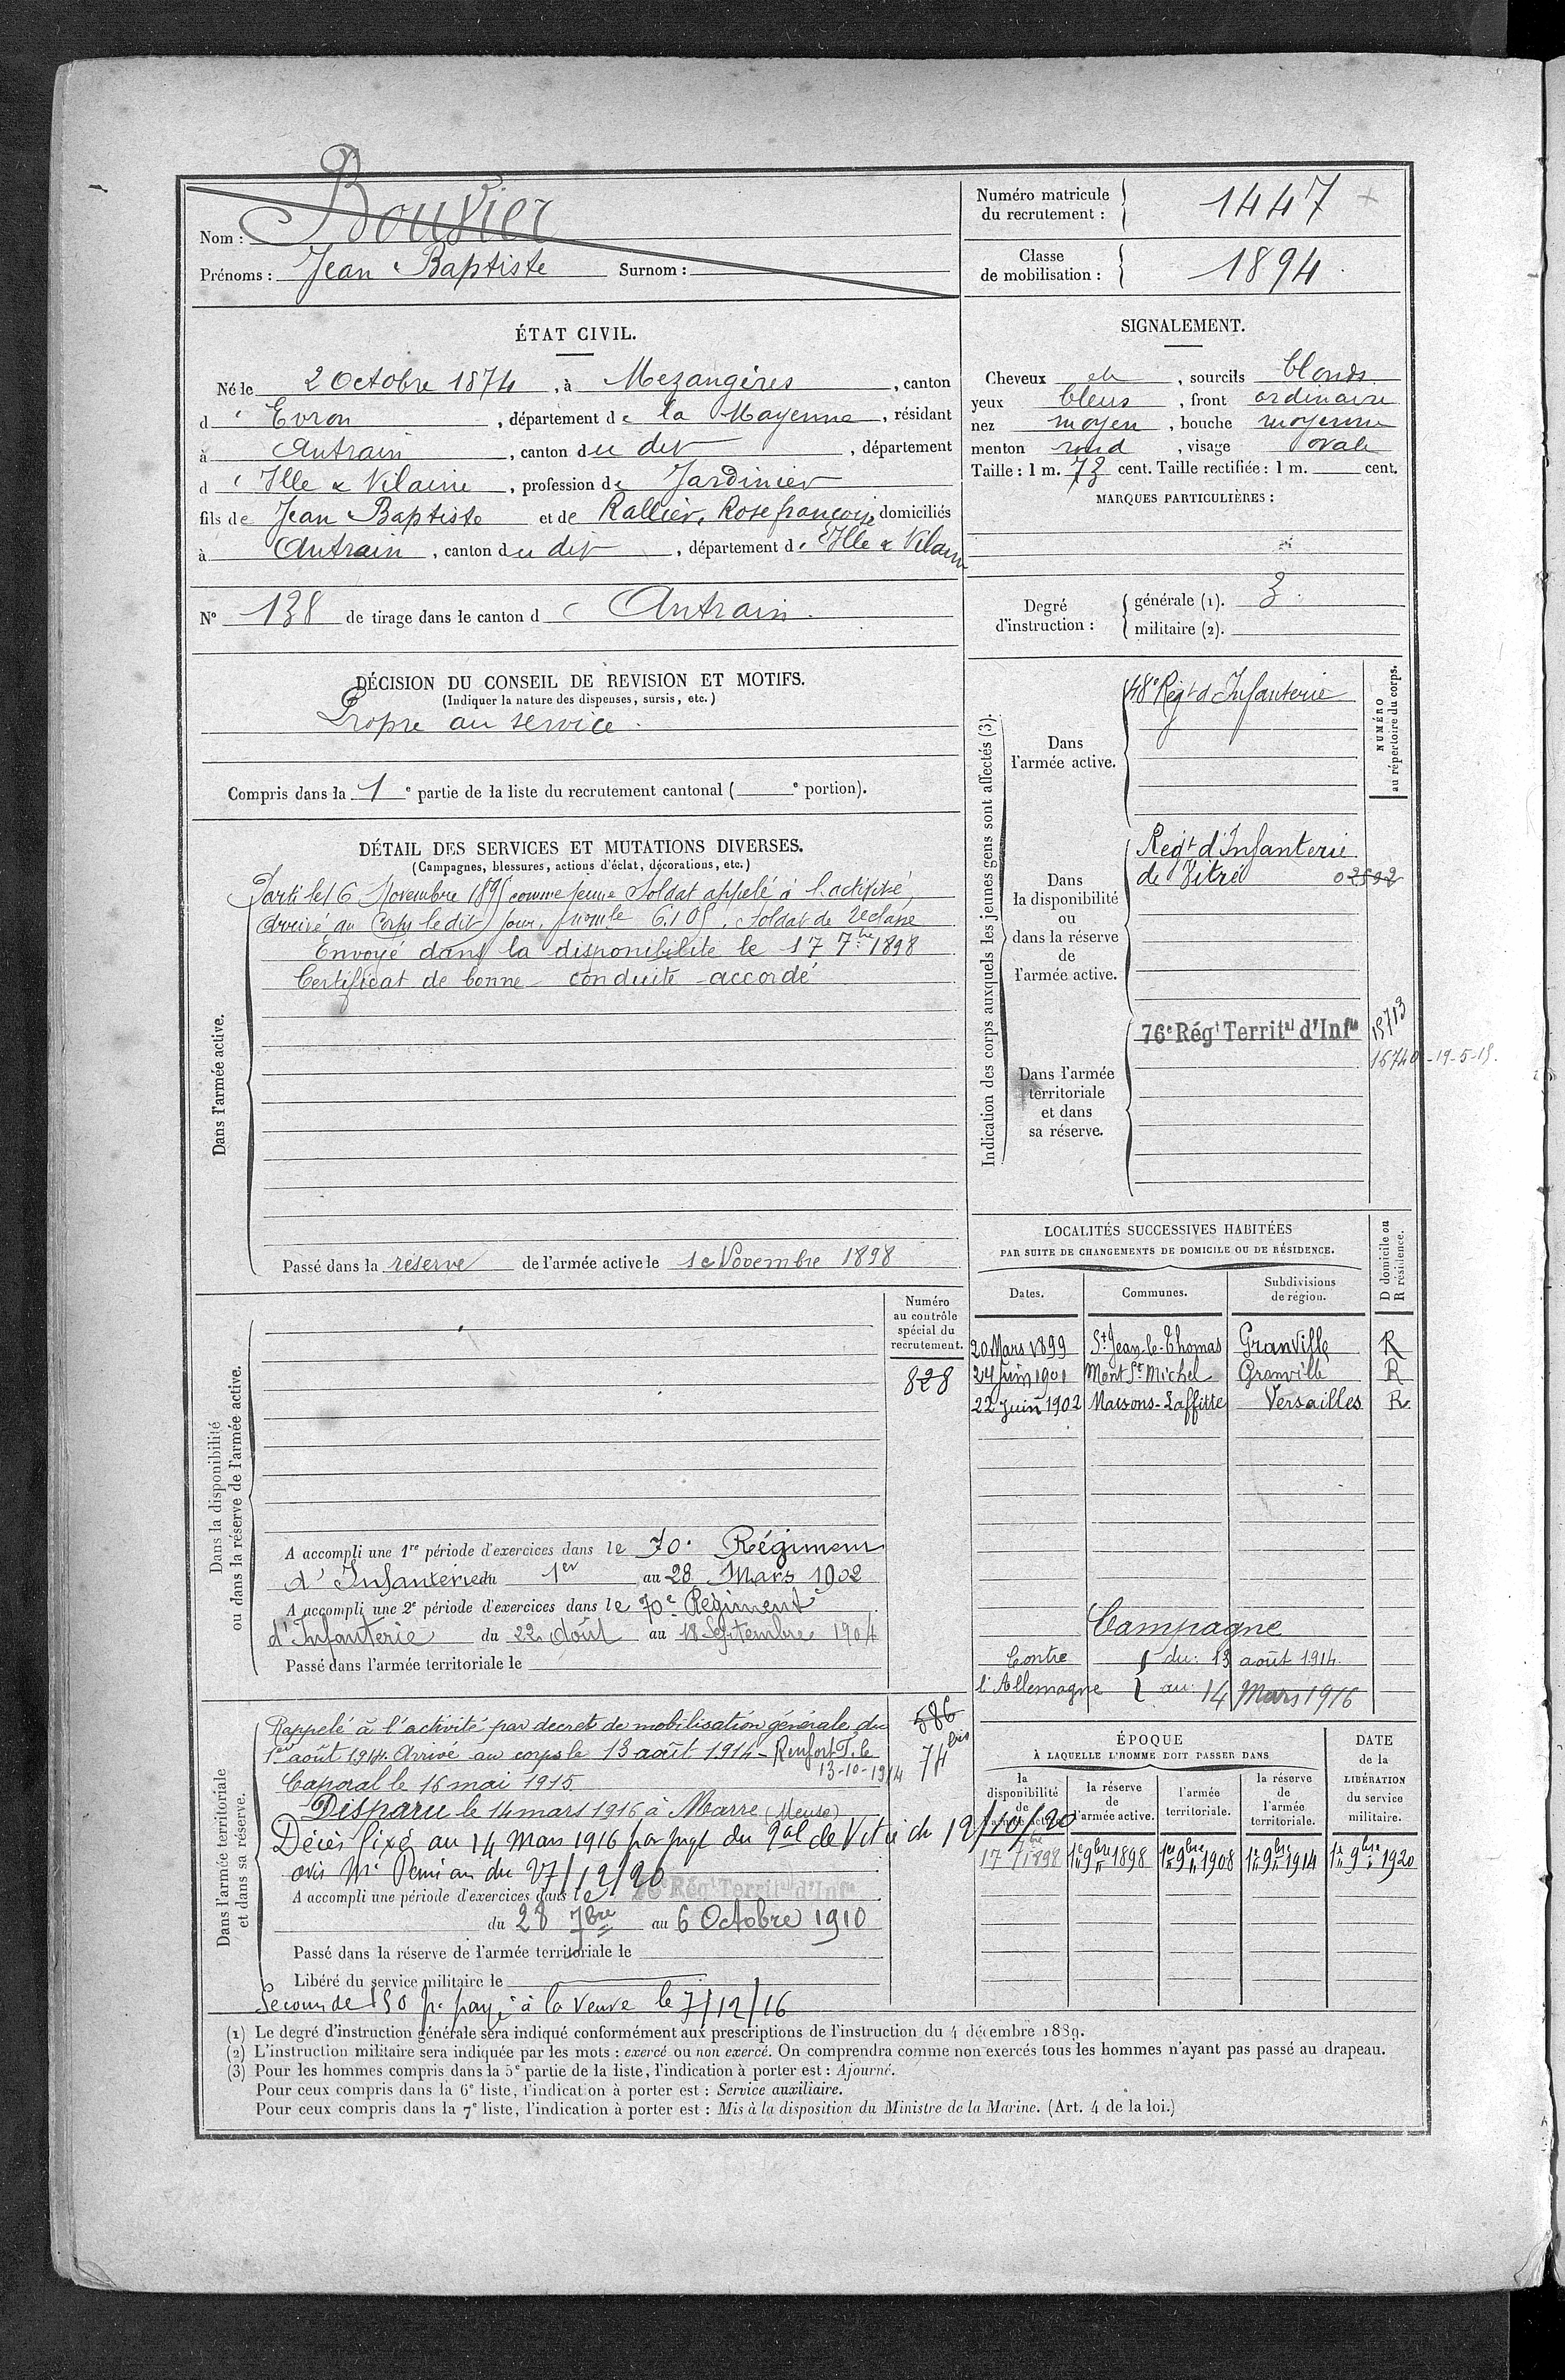 Nom : Bouvier
Prénoms : Jean Baptiste Surnom :
Numéro matricule du recrutement : 1447
Classe de mobilisation : 1894
ÉTAT CIVIL.
Né le 2 Octobre 1874, à Mezangères, canton
d'Evron, département de la Mayenne, résidant
à Antrain, canton du dit, département
d'Ille & Vilaine, profession de Jardinier
fils de Jean Baptiste et de Rallier, Rose françoise domiciliés
à Antrain, canton du dit, département d'Ille & Vilaine
N° 138 de tirage dans le canton d Antrain.
SIGNALEMENT.
Cheveux et, sourcils blonds
yeux bleus, front ordinaire
nez moyen, bouche moyenne
menton rond, visage ovale
Taille : 1 m. 73 cent. Taille rectifiée : 1 m. cent.
MARQUES PARTICULIÈRES :
Degré d'instruction : générale (1). 3.
militaire (2).
DÉCISION DU CONSEIL DE REVISION ET MOTIFS.
(Indiquer la nature des dispenses, sursis, etc.)
Propre au service.
Compris dans la 1e partie de la liste du recrutement cantonal ( e portion).
DÉTAIL DES SERVICES ET MUTATIONS DIVERSES.
(Campagnes, blessures, actions d'éclat, décorations, etc.)
Dans l'armée active.
Parti le 16 Novembre 1895 comme jeune Soldat appelé à l'activité,
Arrivé au Corps le dit jour, 6105, soldat de 2e classe
Envoyé dans la disponibilité le 17 7bre 1898
Certificat de bonne conduite accordé
Passé dans la réserve de l'armée active le 1e Novembre 1898
Indication des corps auxquels les jeunes gens sont affectés (3).
NUMÉRO au répertoire du corps.
Dans l'armée active.
48e Régt d'Infanterie
Dans la disponibilité ou dans la réserve de l'armée active.
Régt d'Infanterie
de Vitré 02592
Dans l'armée territoriale et dans sa réserve.
76e Régt Territal d'Infie
15713
16740-19-5-15.
LOCALITÉS SUCCESSIVES HABITÉES
PAR SUITE DE CHANGEMENTS DE DOMICILE OU DE RÉSIDENCE.
D domicile ou R résidence.
Dates. Communes. Subdivisions de région.
20 Mars 1899 St Jean-le-Thomas Granville R
24 Juin 1901 Mont St Michel Granville R
22 Juin 1902 Maisons-Laffitte Versailles R
Campagne
Contre l'Allemagne du : 13 août 1914
au : 14 Mars 1916
Dans la disponibilité ou dans la réserve de l'armée active.
Numéro au contrôle spécial du recrutement.
828
A accompli une 1re période d'exercices dans le 70e Régiment
d'Infanterie du 1er au 28 Mars 1902
A accompli une 2e période d'exercices dans le 70e Régiment
d'Infanterie du 22 Août au 18 Septembre 1904
Passé dans l'armée territoriale le
Dans l'armée territoriale et dans sa réserve.
586
74 bis
Rappelé à l'activité par décret de mobilisation générale du
1er août 1914. Arrivé au corps le 13 août 1914 - Renfort T. le
13-10-1914
Caporal le 16 mai 1915
Disparu le 14 mars 1916 à Marre (Meuse)
Décès fixé au 14 Mars 1916 par jugt du Tal de Vitré du 12/10/20
avis Mt du 27/12/20
A accompli une période d'exercices dans le 76e Régt Territal d'Infie
du 28 7bre au 6 Octobre 1910
Passé dans la réserve de l'armée territoriale le
Libéré du service militaire le
Secours de 150 fr payé à la veuve le 7/12/16
ÉPOQUE
À LAQUELLE L'HOMME DOIT PASSER DANS
la disponibilité de l'armée active. la réserve de l'armée active. l'armée territoriale. la réserve de l'armée territoriale.
DATE de la LIBÉRATION du service militaire.
17 7bre 1898 1er 9bre 1898 1er 9bre 1908 1er 9bre 1914 1er 9bre 1920
(1) Le degré d'instruction générale sera indiqué conformément aux prescriptions de l'instruction du 4 décembre 1889.
(2) L'instruction militaire sera indiquée par les mots : exercé ou non exercé. On comprendra comme non exercés tous les hommes n'ayant pas passé au drapeau.
(3) Pour les hommes compris dans la 5e partie de la liste, l'indication à porter est : Ajourné.
Pour ceux compris dans la 6e liste, l'indication à porter est : Service auxiliaire.
Pour ceux compris dans la 7e liste, l'indication à porter est : Mis à la disposition du Ministre de la Marine. (Art. 4 de la loi.)